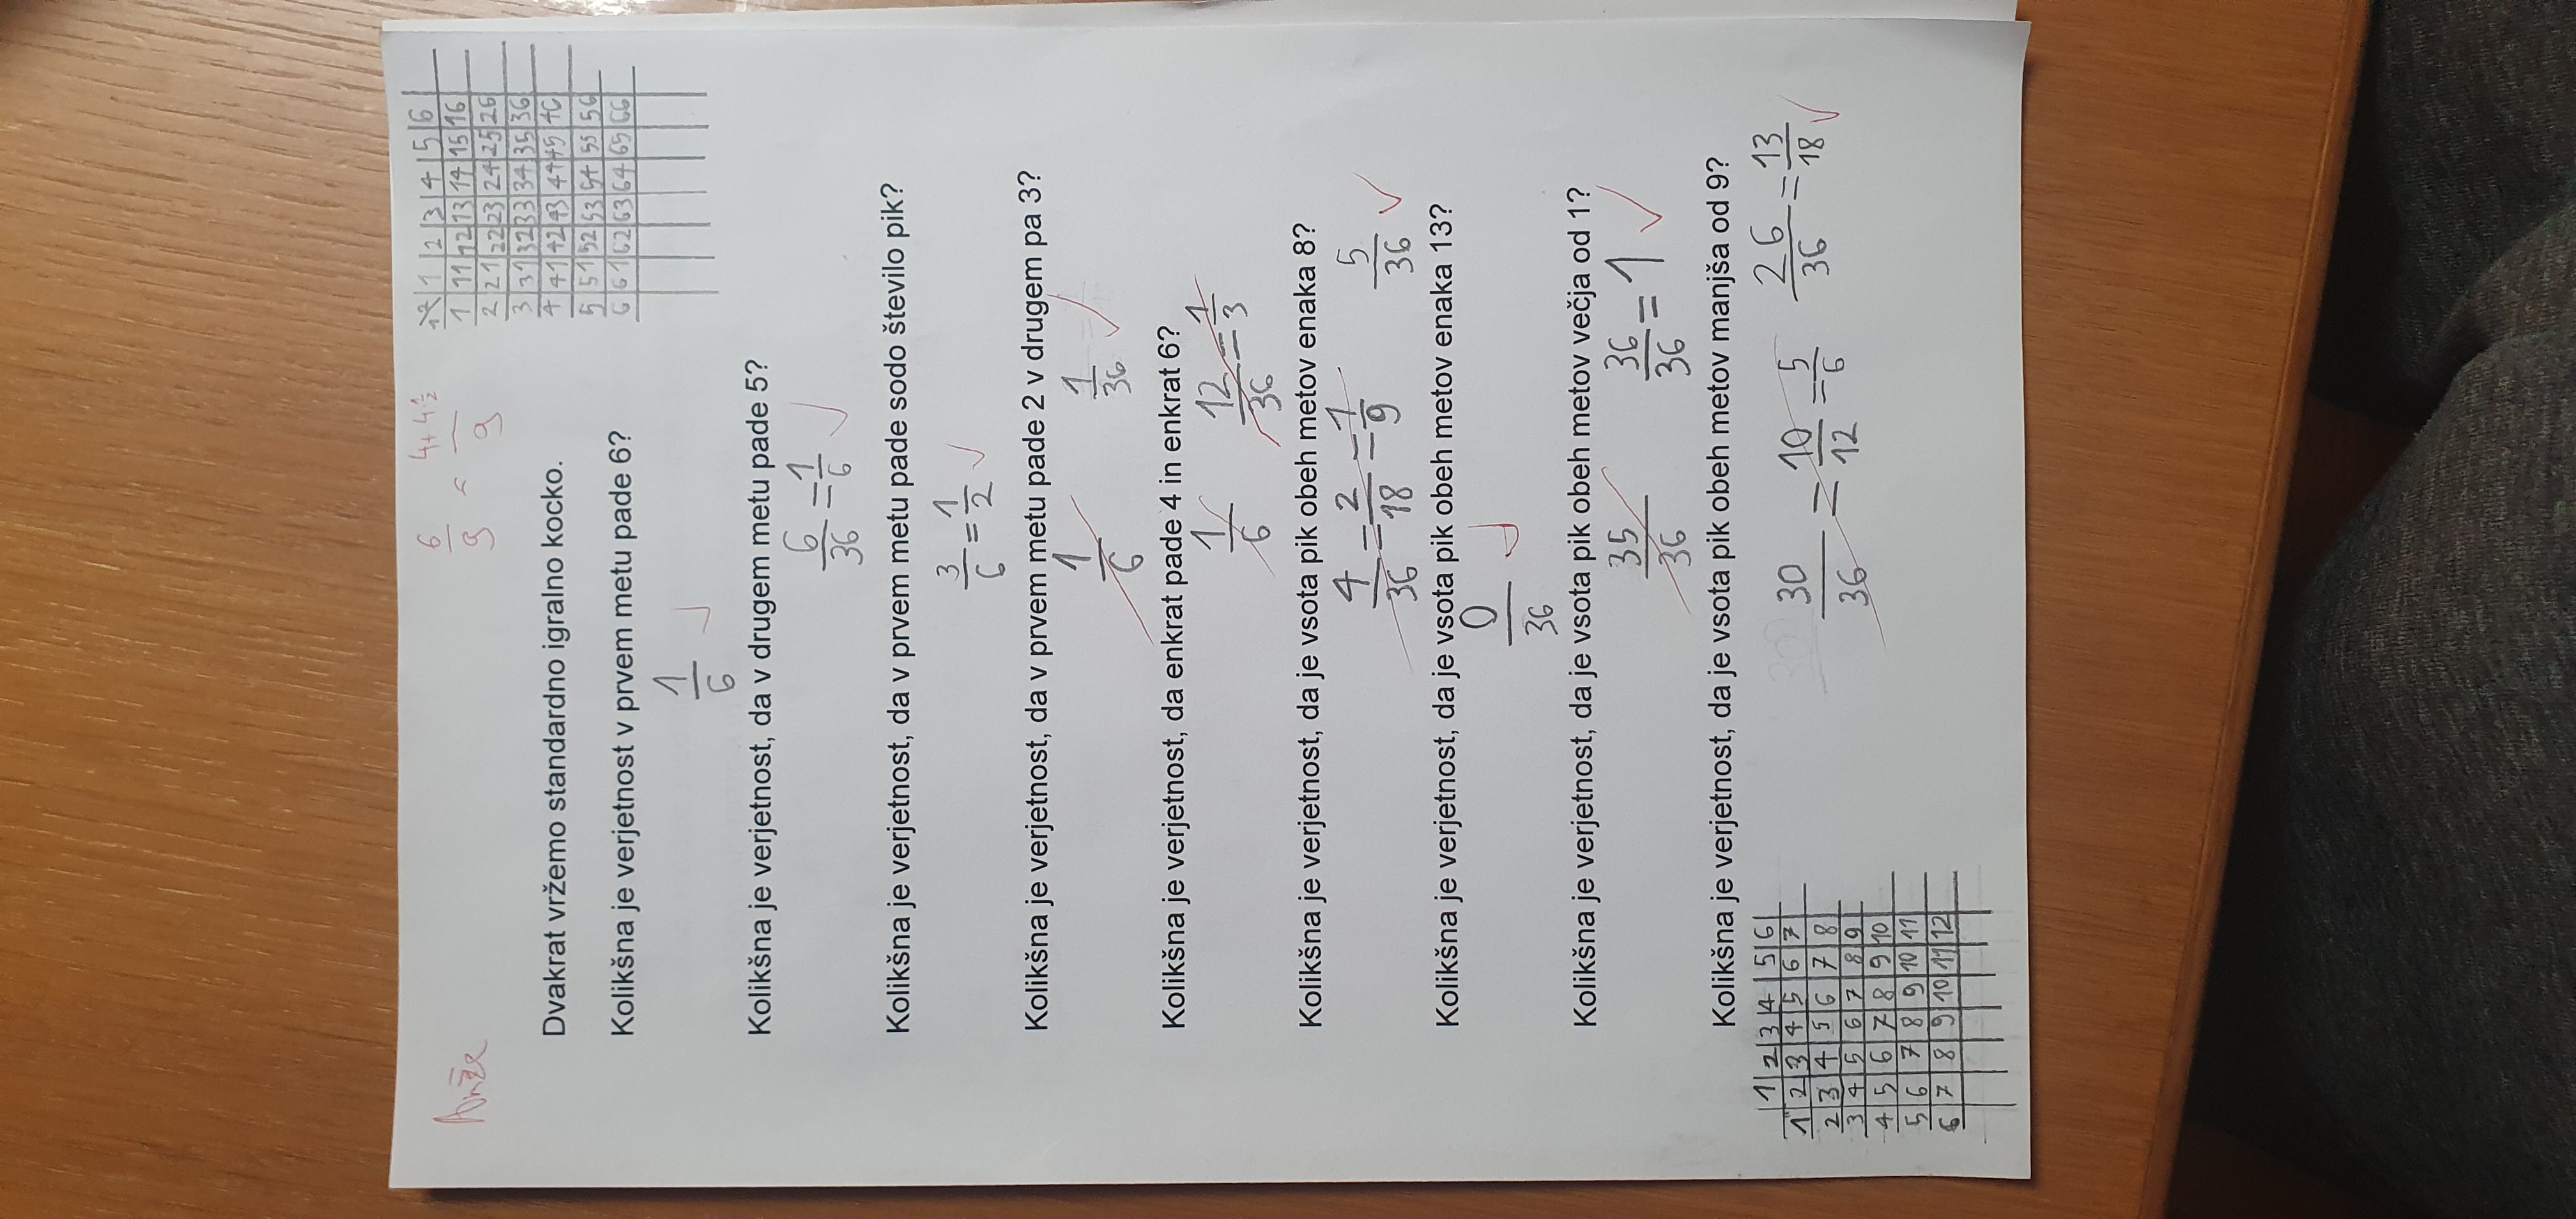 Anže
6/9 = (4+4·1/2)/9
1\2 | 1 | 2 | 3 | 4 | 5 | 6
1 | 11 | 12 | 13 | 14 | 15 | 16
2 | 21 | 22 | 23 | 24 | 25 | 26
3 | 31 | 32 | 33 | 34 | 35 | 36
4 | 41 | 42 | 43 | 44 | 45 | 46
5 | 51 | 52 | 53 | 54 | 55 | 56
6 | 61 | 62 | 63 | 64 | 65 | 66
Dvakrat vržemo standardno igralno kocko.
Kolikšna je verjetnost v prvem metu pade 6?
1/6
Kolikšna je verjetnost, da v drugem metu pade 5?
6/36 = 1/6
Kolikšna je verjetnost, da v prvem metu pade sodo število pik?
3/6 = 1/2
Kolikšna je verjetnost, da v prvem metu pade 2 v drugem pa 3?
1/6 1/36
Kolikšna je verjetnost, da enkrat pade 4 in enkrat 6?
1/6 12/36 = 1/3
Kolikšna je verjetnost, da je vsota pik obeh metov enaka 8?
4/36 = 2/18 = 1/9 5/36
Kolikšna je verjetnost, da je vsota pik obeh metov enaka 13?
0/36
Kolikšna je verjetnost, da je vsota pik obeh metov večja od 1?
35/36 36/36 = 1
Kolikšna je verjetnost, da je vsota pik obeh metov manjša od 9?
30/36 = 10/12 = 5/6 26/36 = 13/18
1 | 2 | 3 | 4 | 5 | 6
1 | 2 | 3 | 4 | 5 | 6 | 7
2 | 3 | 4 | 5 | 6 | 7 | 8
3 | 4 | 5 | 6 | 7 | 8 | 9
4 | 5 | 6 | 7 | 8 | 9 | 10
5 | 6 | 7 | 8 | 9 | 10 | 11
6 | 7 | 8 | 9 | 10 | 11 | 12